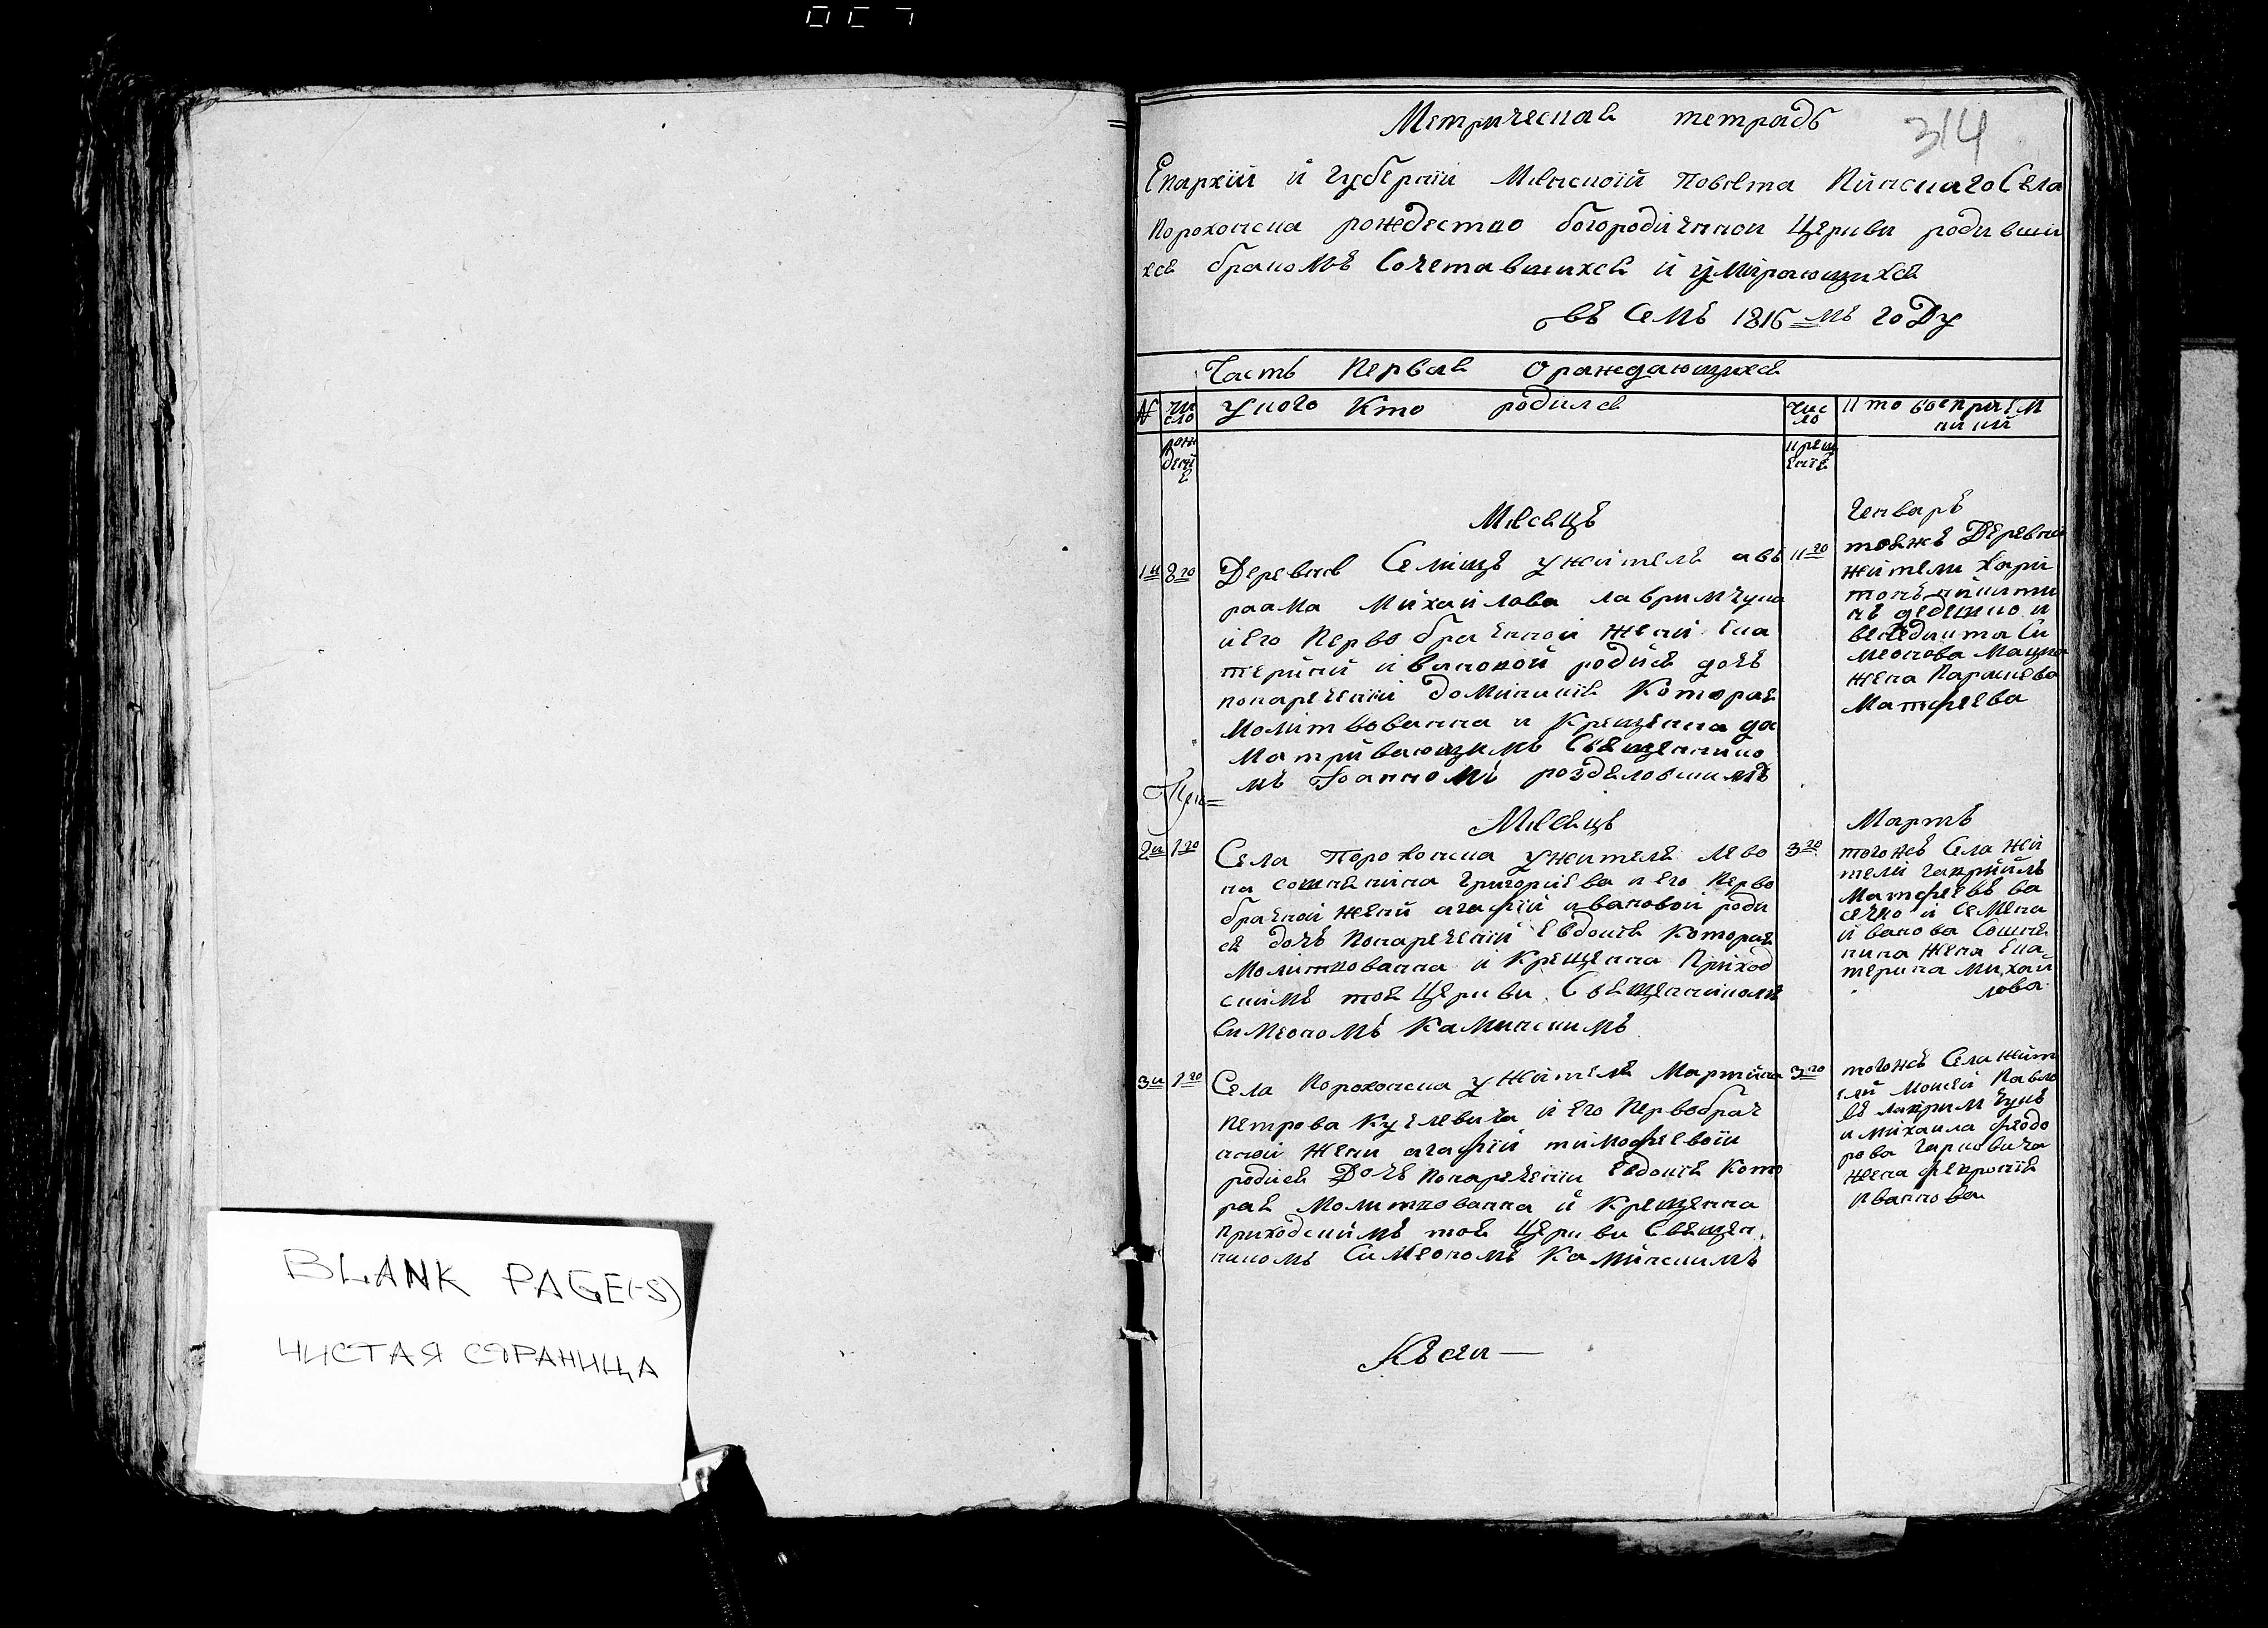 BLANK PAGE(-S)
ЧИСТАЯ СТРАНИЦА
Метрическая тетрадь
314
Епархїи й губернїи Минскоїй повѣта Пинскаго Села
Порохонска рожdество богородиченнои Церкви родивши
хся бракомъ Сочетавшихся и умирающихся
въ семъ 1816-мъ году
Часть Первая О раждающихся
№
чи
сло
у кого Кто родился
чис
ло
Кто воспрїем
ники
рож
денї
е
крещ
енїе
Месяцъ
Генваръ
1й
8го
Деревня Селищъ у жителя авъ
раама Михайлова лавримчука
и Его Первобрачной жени Ека
терини ивановой родися дочь
понаречении доминикїя Которая
Молитвованна и Крещенна да
Матривающимъ Священнико
мъ Іоанномъ
11го
тояжъ Деревни
жители Хари
тонъ
Симеонова
жена
Матфеева
Месяцъ
Мартъ
2й
1го
Села Порохонска у жителя лево
на сошнянина Григориева и Его Перво
брачной жени агафїи ивановой роди
ся дочь Понаречении Евдокїя Которая
Молитвованна и Крещенна Приход
скимъ тоя Церкви Священникомъ
Симеономъ Каминскимъ
3го
тогожъ Села жи
тели гаврїилъ
Матфеевъ ва
сечко и Семена
иванова Сошня
нина жена Ека-
терина михай
лова
3й
1го
Села Порохонска у жителя Мартина
Петрова Кузлевича и Его Первобрач
ной жени агафїи тимофеевоїи
родися Дочь Понаречении Евдокїя Кото
рая Молитвованна и Крещенна
приходскимъ тоя Церкви Священ
никомъ Симеономъ Каминскимъ
3го
тогожъ Села жит
ели Моисей Павло
въ лавримчукъ
и михаила феодо
рова
жена февронїя
иваннова